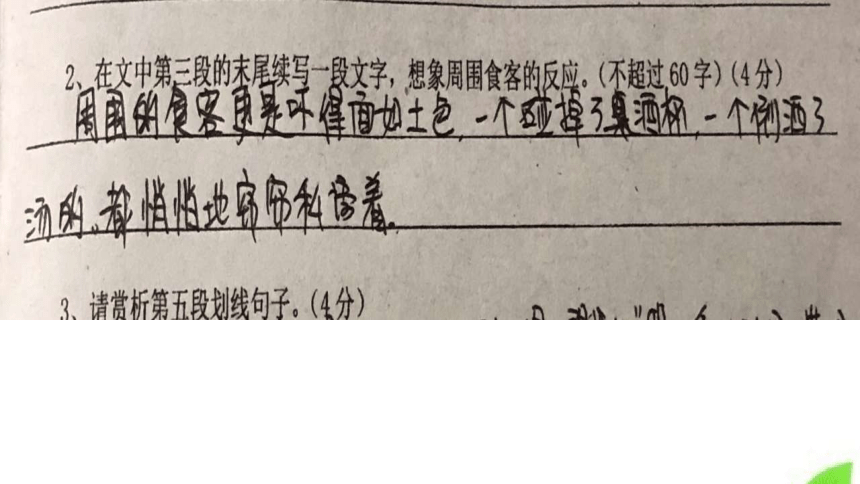 2、在文中第三段的末尾续写一段文字，想象周围食客的反应。(不超过60字)(4分)
周围的食客更是吓得面如土色，一个碰掉了桌酒杯，一个倒洒了
汤的，都悄悄地窃窃私语着。
3、请赏析第五段划线句子。(4分)